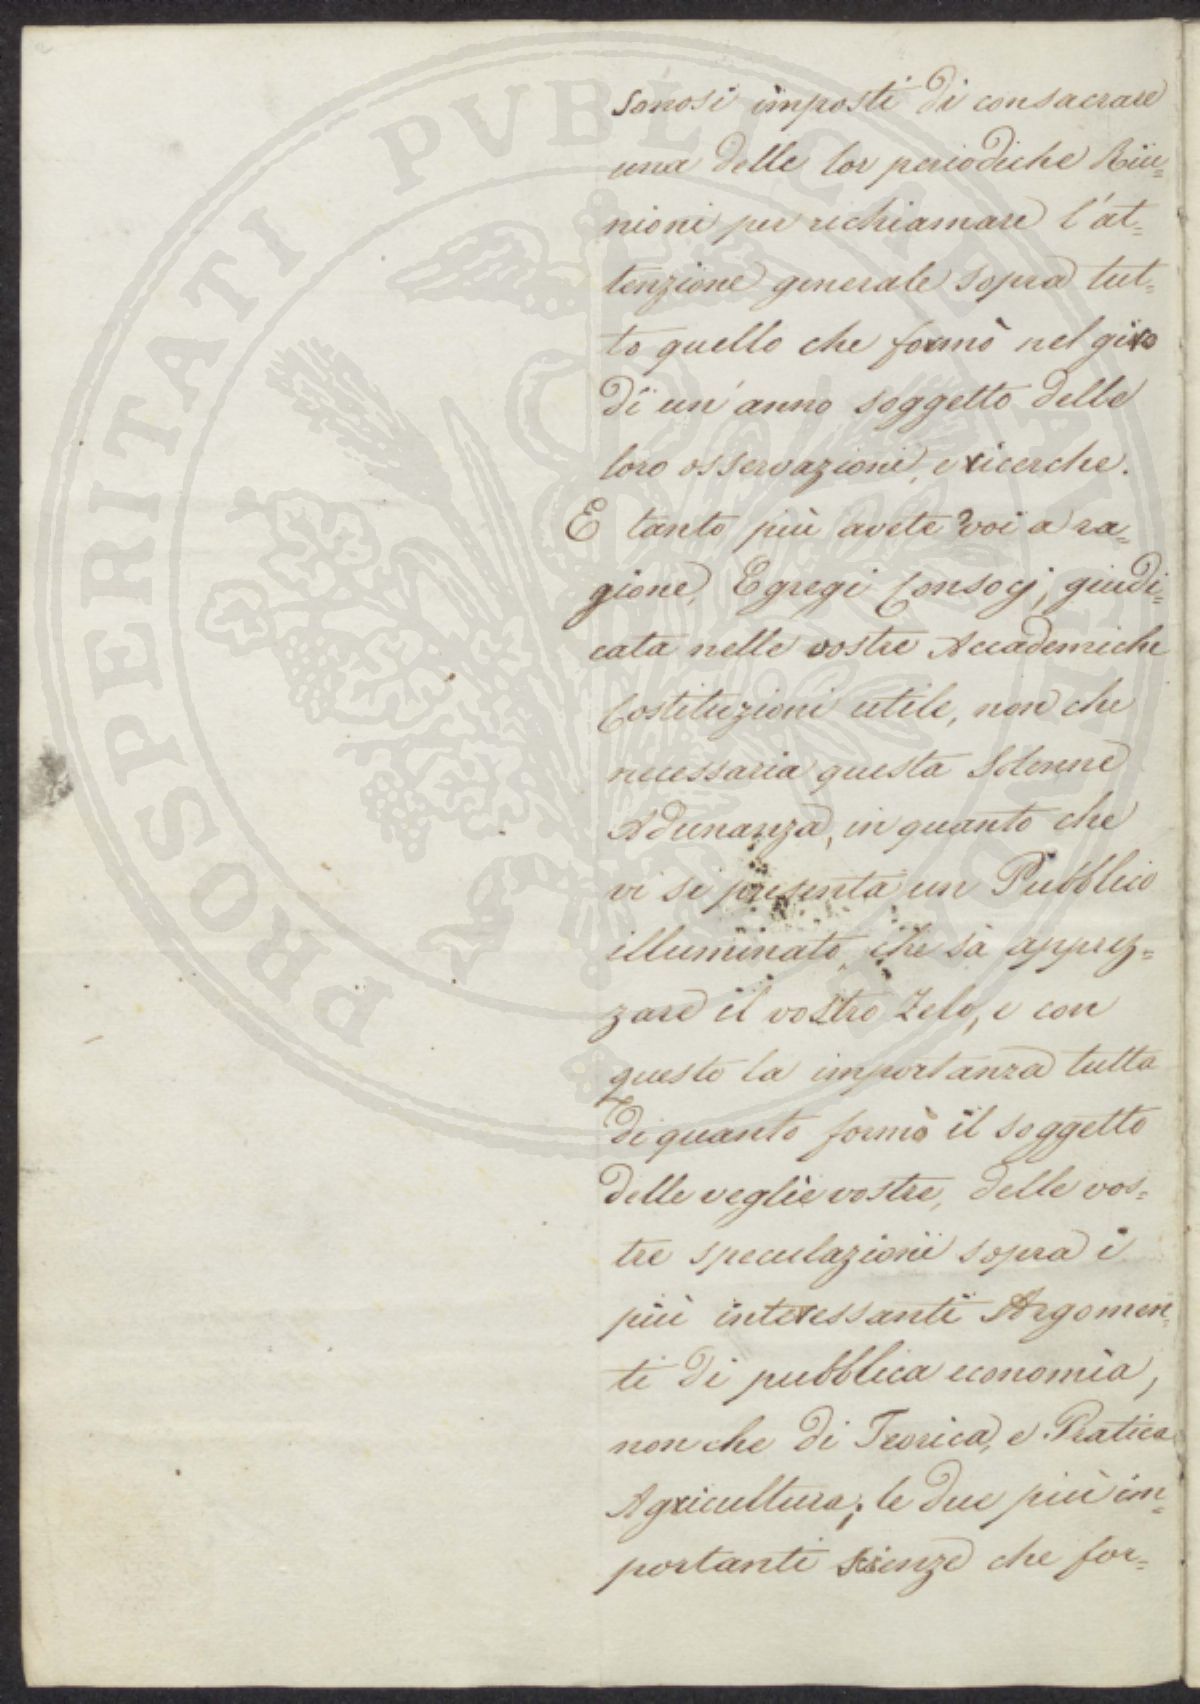 sonosi imposti di consacrare
una delle lor periodiche Riu=
nioni per richiamare l'at=
tenzione generale sopra tut=
to quello che formò nel giro
di un'anno soggetto delle
loro osservazioni, e ricerche.
E tanto più avete voi a ra=
gione, Egregi Consocj, giudi=
cata nelle vostre Accademiche
Costituzioni utile, non che
necessaria questa Solenne
Adunanza, in quanto che
vi si presenta un Pubblico
illuminato, che sà apprez=
zare il vostro Zelo, e con
questo la importanza tutta
di quanto formò il soggetto
delle veglie vostre, delle vos=
tre speculazioni sopra i
più interessanti Argomen=
ti di pubblica economia,
non che di Teorica, e Pratica
Agricultura; le due più im=
portanti Scienze che for=
PROSPERITATI PVBLICAE AVGENDAE